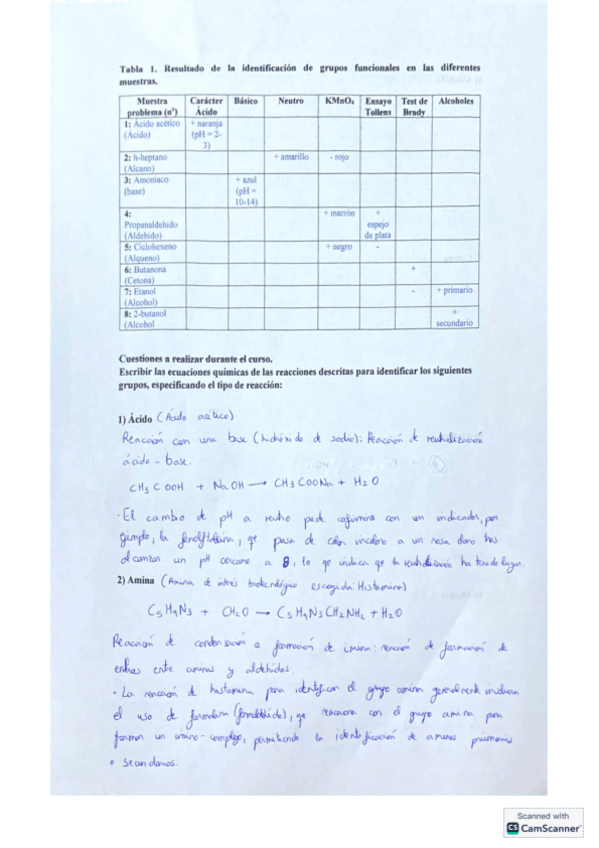 Tabla 1. Resultado de la identificación de grupos funcionales en las diferentes
muestras.
Muestra problema (nº) Carácter Ácido Básico Neutro KMnO₄ Ensayo Tollens Test de Brady Alcoholes
1: Ácido acético (Ácido) + naranja (pH = 2-3)
2: h-heptano (Alcano) + amarillo - rojo
3: Amoniaco (base) + azul (pH = 10-14)
4: Propanaldehido (Aldehido) + marrón + espejo de plata
5: Ciclohexeno (Alqueno) + negro -
6: Butanona (Cetona) +
7: Etanol (Alcohol) - + primario
8: 2-butanol (Alcohol + secundario
Cuestiones a realizar durante el curso.
Escribir las ecuaciones químicas de las reacciones descritas para identificar los siguientes
grupos, especificando el tipo de reacción:
1) Ácido (Ácido acético)
Reacción con una base (hidróxido de sodio): Reacción de neutralización
ácido - base.
CH₃COOH + NaOH → CH₃COONa + H₂O
· El cambio de pH a neutro puede confirmarse con un indicador, por
ejemplo, la fenolftaleína, que pasa de color incoloro a un rosa claro tras
alcanzar un pH cercano a 8, lo que indica que la neutralización ha tenido lugar.
2) Amina (Amina de interés biotecnológico escogida: Histamina)
C₅H₉N₃ + CH₂O → C₅H₉N₃CH₂NH₂ + H₂O
Reacción de condensación o formación de imina: reacción de formación de
entre aminas y aldehidos.
· La reacción de histamina para identificar el grupo amina generalmente involucra
el uso de (formaldehido), que reacciona con el grupo amina para
formar un complejo, permitiendo la identificación de aminas primarias
o secundarias.
Scanned with
CS CamScanner